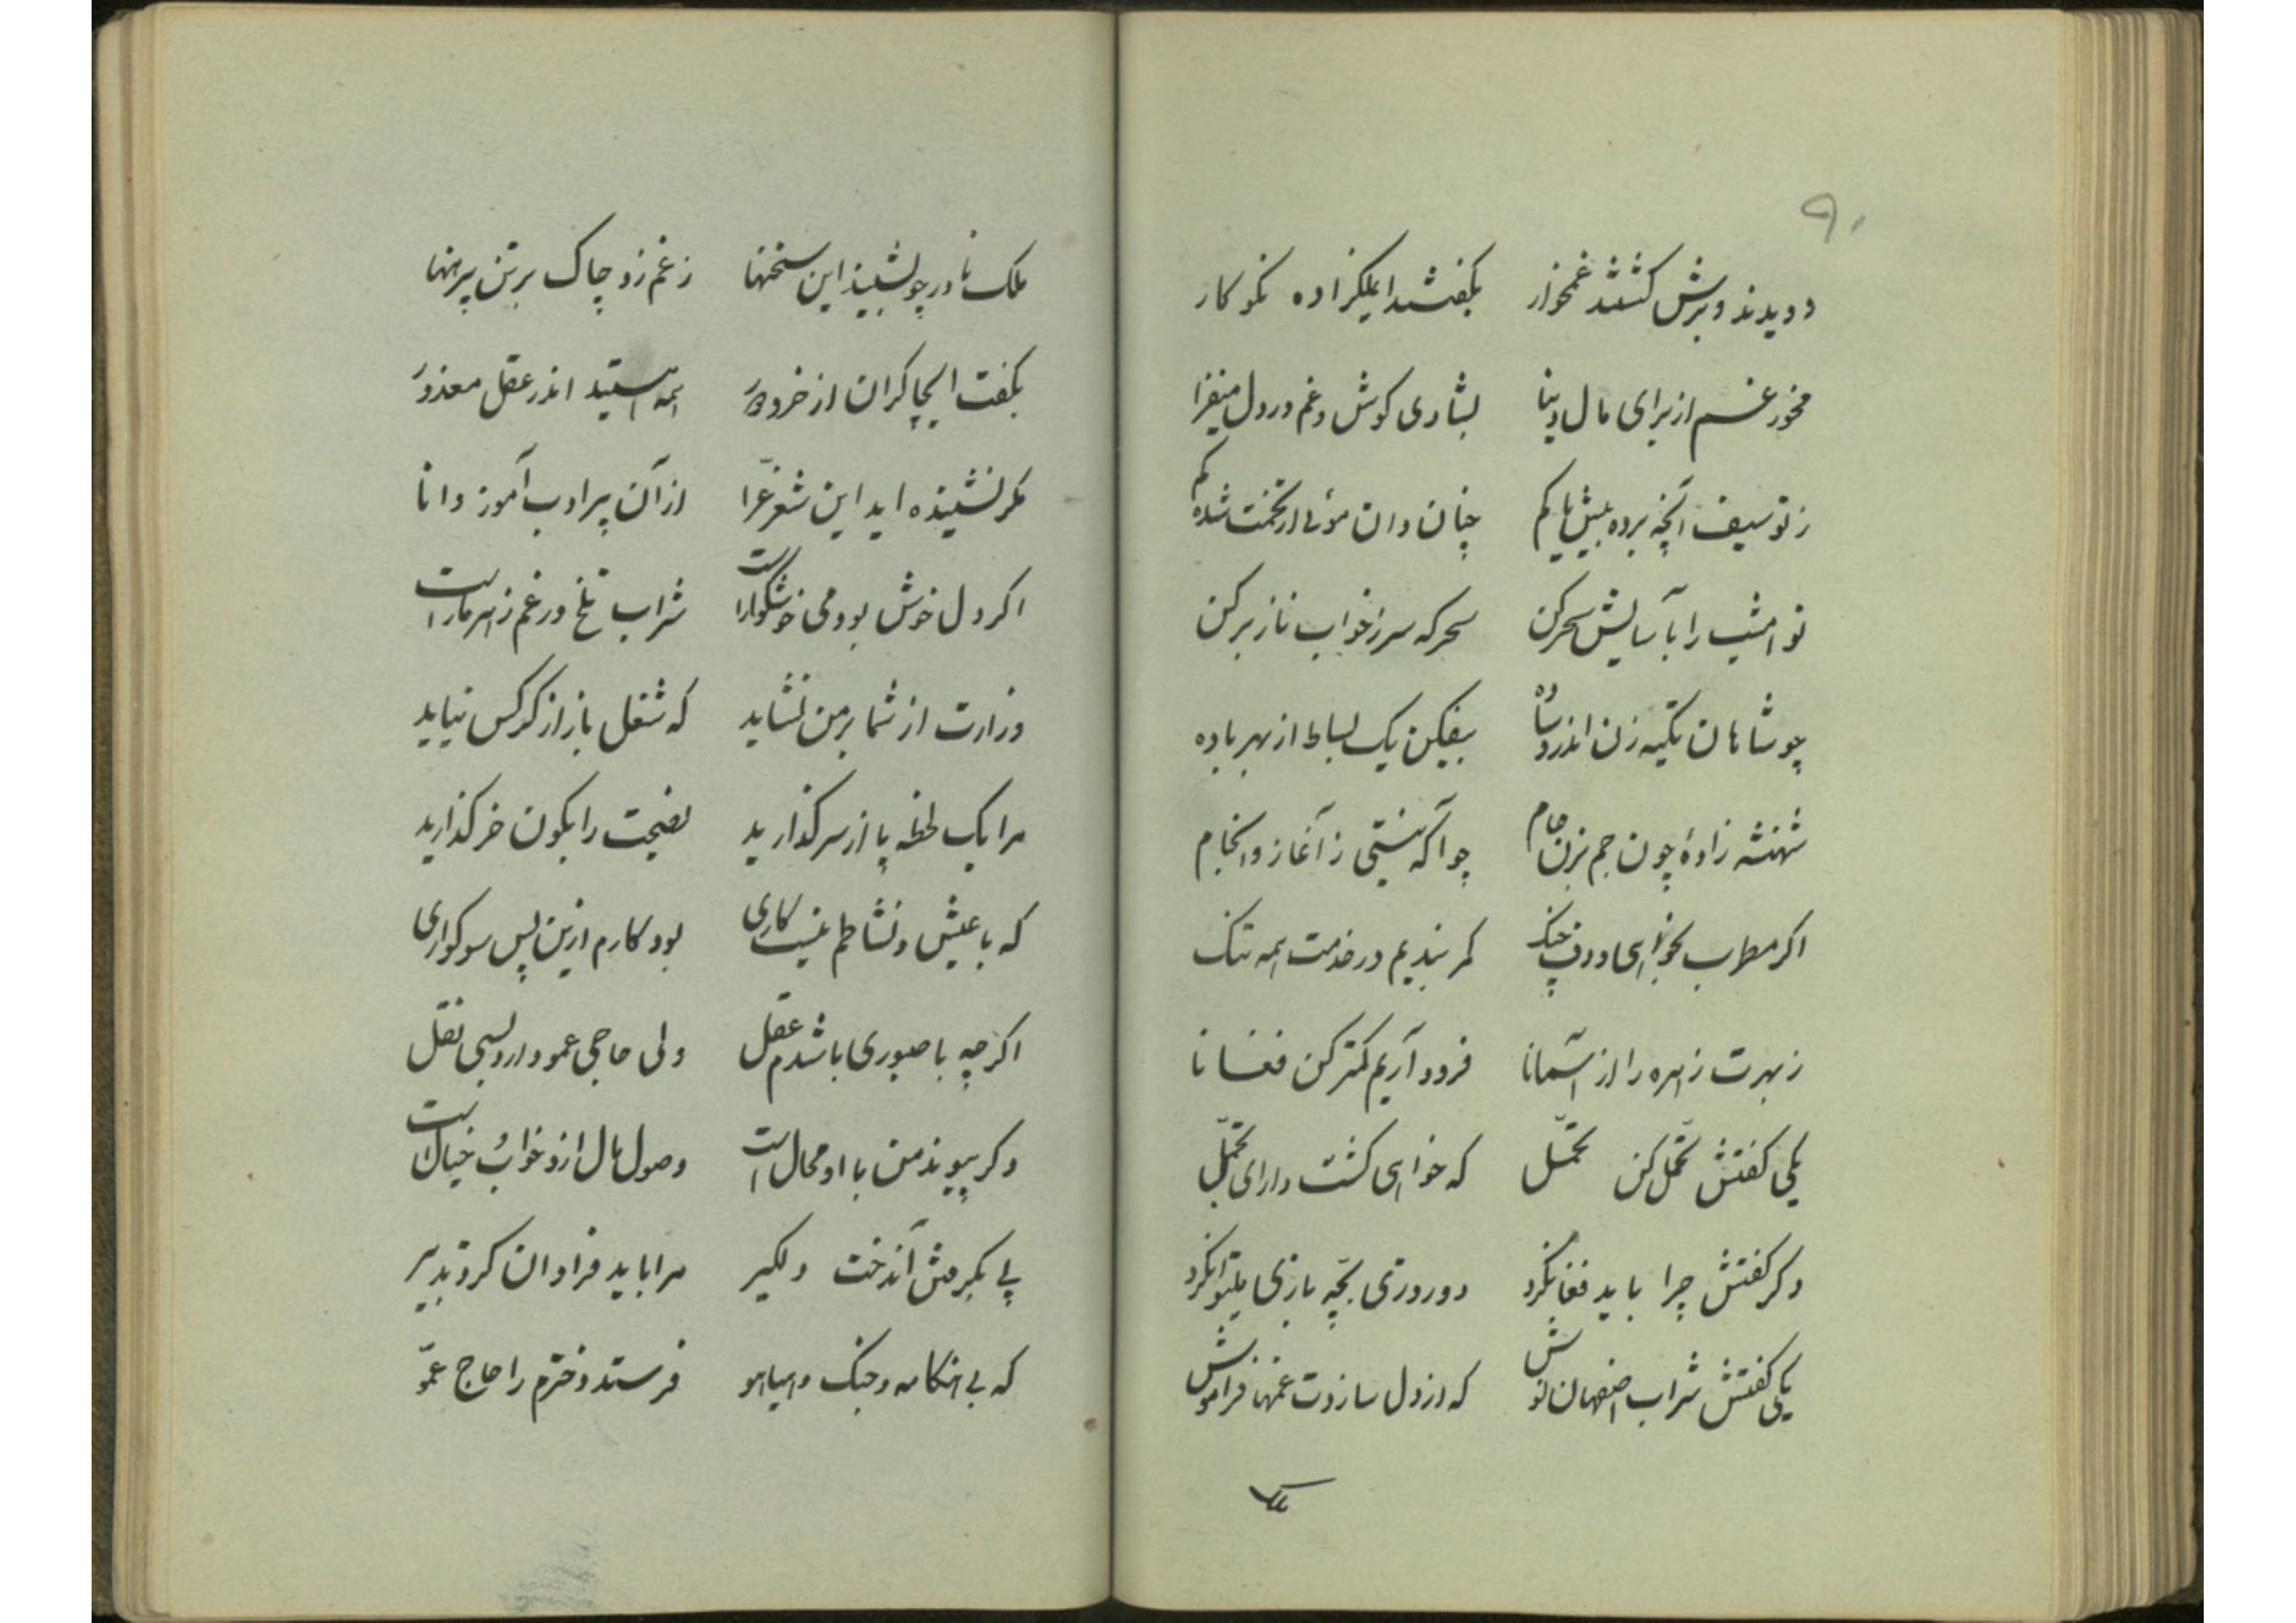 ۹۰
دویدند و برش گشتند غمخوار بگفتند ایملکزاده نکو کار
مخور غم از برای مال دنیا بشادی کوش و غم در دل میفزا
ز توسیف آنچه برده بیش یا کم چنان دان موئی از تختت شده کم
تو امشب را بآسایش سحر کن سحر که سر ز خواب ناز بر کن
چو شاهان تکیه زن اندر وساده بیفکن یک بساط از بهر باده
شهنشه زادهٔ چون جم بزن جام چو آگه نیستی ز آغاز و انجام
اگر مطرب بخواهی و دف و چنگ کمر بندیم در خدمت همه تنگ
ز بهرت زهره را از آسمانا فرود آریم کمتر کن فغانا
یکی گفتش تحمّل کن تحمّل که خواهی گشت دارای تجمّل
دگر گفتش چرا باید فغانکرد دو روزی بچّه بازی میتوانکرد
یکی گفتش شراب اصفهان نوش که از دل سازدت غمها فراموش
ملک نادر چو بشنید این سخنها ز غم زد چاک بر تن پیرهنها
بگفت ایچاکران از خرد دور همه هستید اندر عقل معذور
مگر نشنیده اید این شعر غرّا از آن پیر ادب آموز دانا
اگر دل خوش بود می خوشگوار است شراب تلخ در غم زهر مار است
وزارت از شما بر من نشاید که شغل باز از کرکس نیاید
مرا یک لحظه پا از سر گذارید نصیحت را بکون خر گذارید
که با عیش و نشاطم نیست کاری بود کارم ازین پس سوگواری
اگر چه با صبوری باشدم عقل ولی حاجی عمو دارد بسی نقل
دگر پیوند من با او محال است وصول مال ازو خواب و خیال است
پی بگرفتن آندخت دلگیر مرا باید فراوان کرد تدبیر
که بی هنگامه و جنگ و هیاهو فرستد دخترم را حاج عمّو